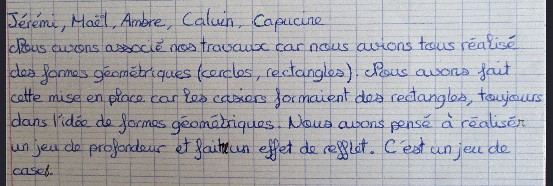 Jérémi, Maël, Ambre, Calvin, Capucine
Nous avons associé nos travaux car nous avions tous réalisé
des formes géométriques (cercles, rectangles). Nous avons fait
cette mise en place car les casiers formaient des rectangles, toujours
dans l'idée de formes géométriques. Nous avons pensé à réaliser
un jeu de profondeur et fait un effet de refflet. C'est un jeu de
cases.